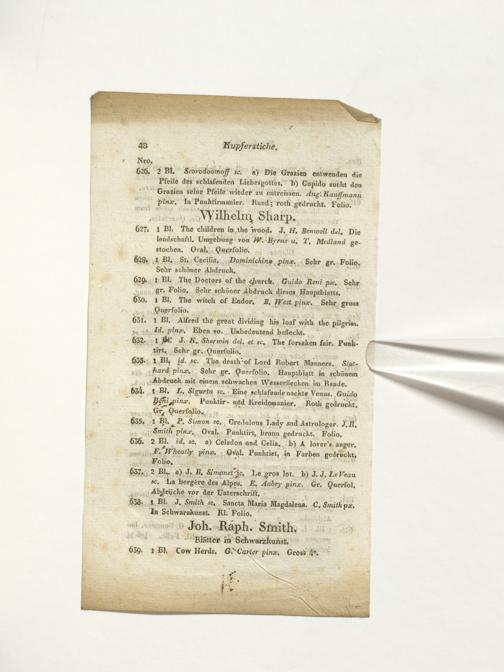 48 Kupferstiche.
Nro.
626. 2 Bl. Scorodoomoff sc. a) Die Grazien entwenden die
Pfeile des schlafenden Liebesgottes. b) Cupido sucht den
Grazien seine Pfeile wieder zu entreissen. Ang: Kauffmann
pinx. In Punktirmanier. Rund; roth gedruckt. Folio.
Wilhelm Sharp.
627. 1 Bl. The children in the wood. J. H. Benwell del. Die
landschaftl. Umgebung von W. Byrne u. T. Medland ge-
stochen. Oval. Querfolio.
628. 1 Bl. St. Cecilia. Dominichino pinx. Sehr gr. Folio.
Sehr schöner Abdruck.
629. 1 Bl. The Doctors of the church. Guido Reni px. Sehr
gr. Folio. Sehr schöner Abdruck dieses Hauptblatts.
630. 1 Bl. The witch of Endor. B. West pinx. Sehr gross
Querfolio.
631. 1 Bl. Alfred the great dividing his loaf with the pilgrim.
Id. pinx. Eben so. Unbedeutend befleckt.
632. 1 Bl. J. K. Sherwin del. et sc. The forsaken fair. Punk-
tirt. Sehr gr. Querfolio.
633. 1 Bl. id. sc. The death of Lord Robert Manners. Stot-
hard pinx. Sehr gr. Querfolio. Hauptblatt in schönem
Abdruck mit einem schwachen Wasserflecken im Rande.
634. 1 Bl. L. Sigurta sc. Eine schlafende nackte Venus. Guido
Reni pinx. Punktir- und Kreidemanier. Roth gedruckt.
Gr. Querfolio.
635. 1 Bl. P. Simon sc. Credulous Lady and Astrologer. J. R.
Smith pinx. Oval. Punktirt, braun gedruckt. Folio.
636. 2 Bl. id. sc. a) Celadon and Celia. b) A lover's anger.
F. Wheatly pinx. Oval. Punktirt, in Farben gedruckt.
Folio.
637. 2 Bl. a) J. B. Simonet sc. Le gros lot. b) J. J. Le Veau
sc. La bergère des Alpes. E. Aubry pinx. Gr. Querfol.
Abdrücke vor der Unterschrift.
638. 1 Bl. J. Smith sc. Sancta Maria Magdalena. C. Smith px.
In Schwarzkunst. Kl. Folio.
Joh. Raph. Smith.
Blätter in Schwarzkunst.
639. 1 Bl. Cow Herds. G. Carter pinx. Gross 4°.